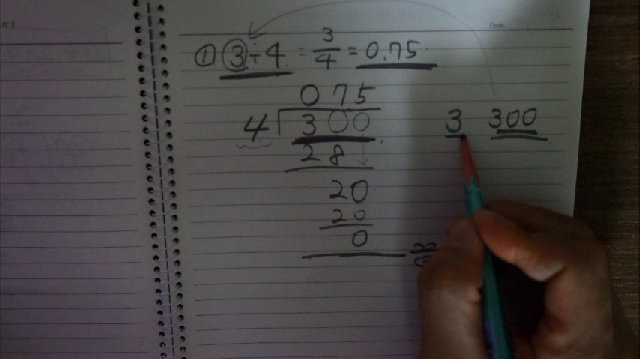 ① 3÷4 = 3/4 = 0.75
075
4 300 3 300
28
20
20
0